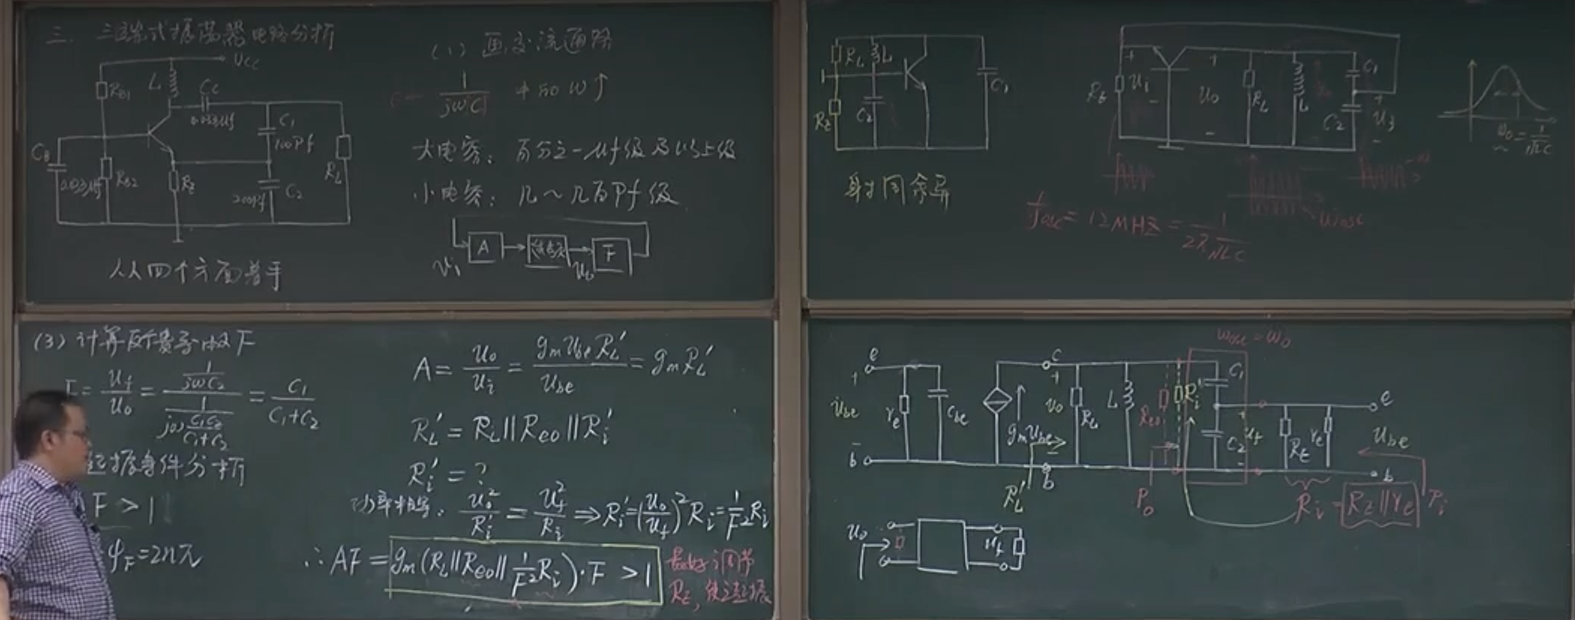 三、三端式振荡器电路分析
(1) 画交流通路
VCC
RB1
L
CC
0.033μf
C1
100Pf
CB
0.033μf
RB2
RE
C2
200Pf
RL
从四个方面着手
1/jωC
ω↑
大电容：百分之一μf级及以上级
小电容：几~几百Pf级
A
F
RL
L
C1
C2
RE
射同余异
RE
U1
Uo
RL
L
C1
C2
Uf
ω0 = 1/√LC
fosc = 12MHZ = 1/2π√LC
ωosc
(3) 计算反馈系数F
F = uf/uo = (1/jωC2)/(1/(jω C1C2/(C1+C2))) = C1/(C1+C2)
起振条件分析
F > 1
φF = 2nπ
A = uo/ui = gm ube RL′/ube = gm RL′
RL′ = RL∥Reo∥Ri′
Ri′ = ?
功率相等: uo²/Ri′ = uf²/Ri ⇒ Ri′ = (uo/uf)² Ri = 1/F² Ri
∴ AF = gm(RL∥Reo∥1/F² Ri)·F > 1
最好调节
RE, 使之起振
ωosc = ω0
e
Ube
re
Cbe
b
c
gmUbe
uo
RL
L
Reo
Ri′
C1
C2
uf
RE
re
e
Ube
b
RL′
b
Po
Ri = RE∥re
Pi
uo
uf